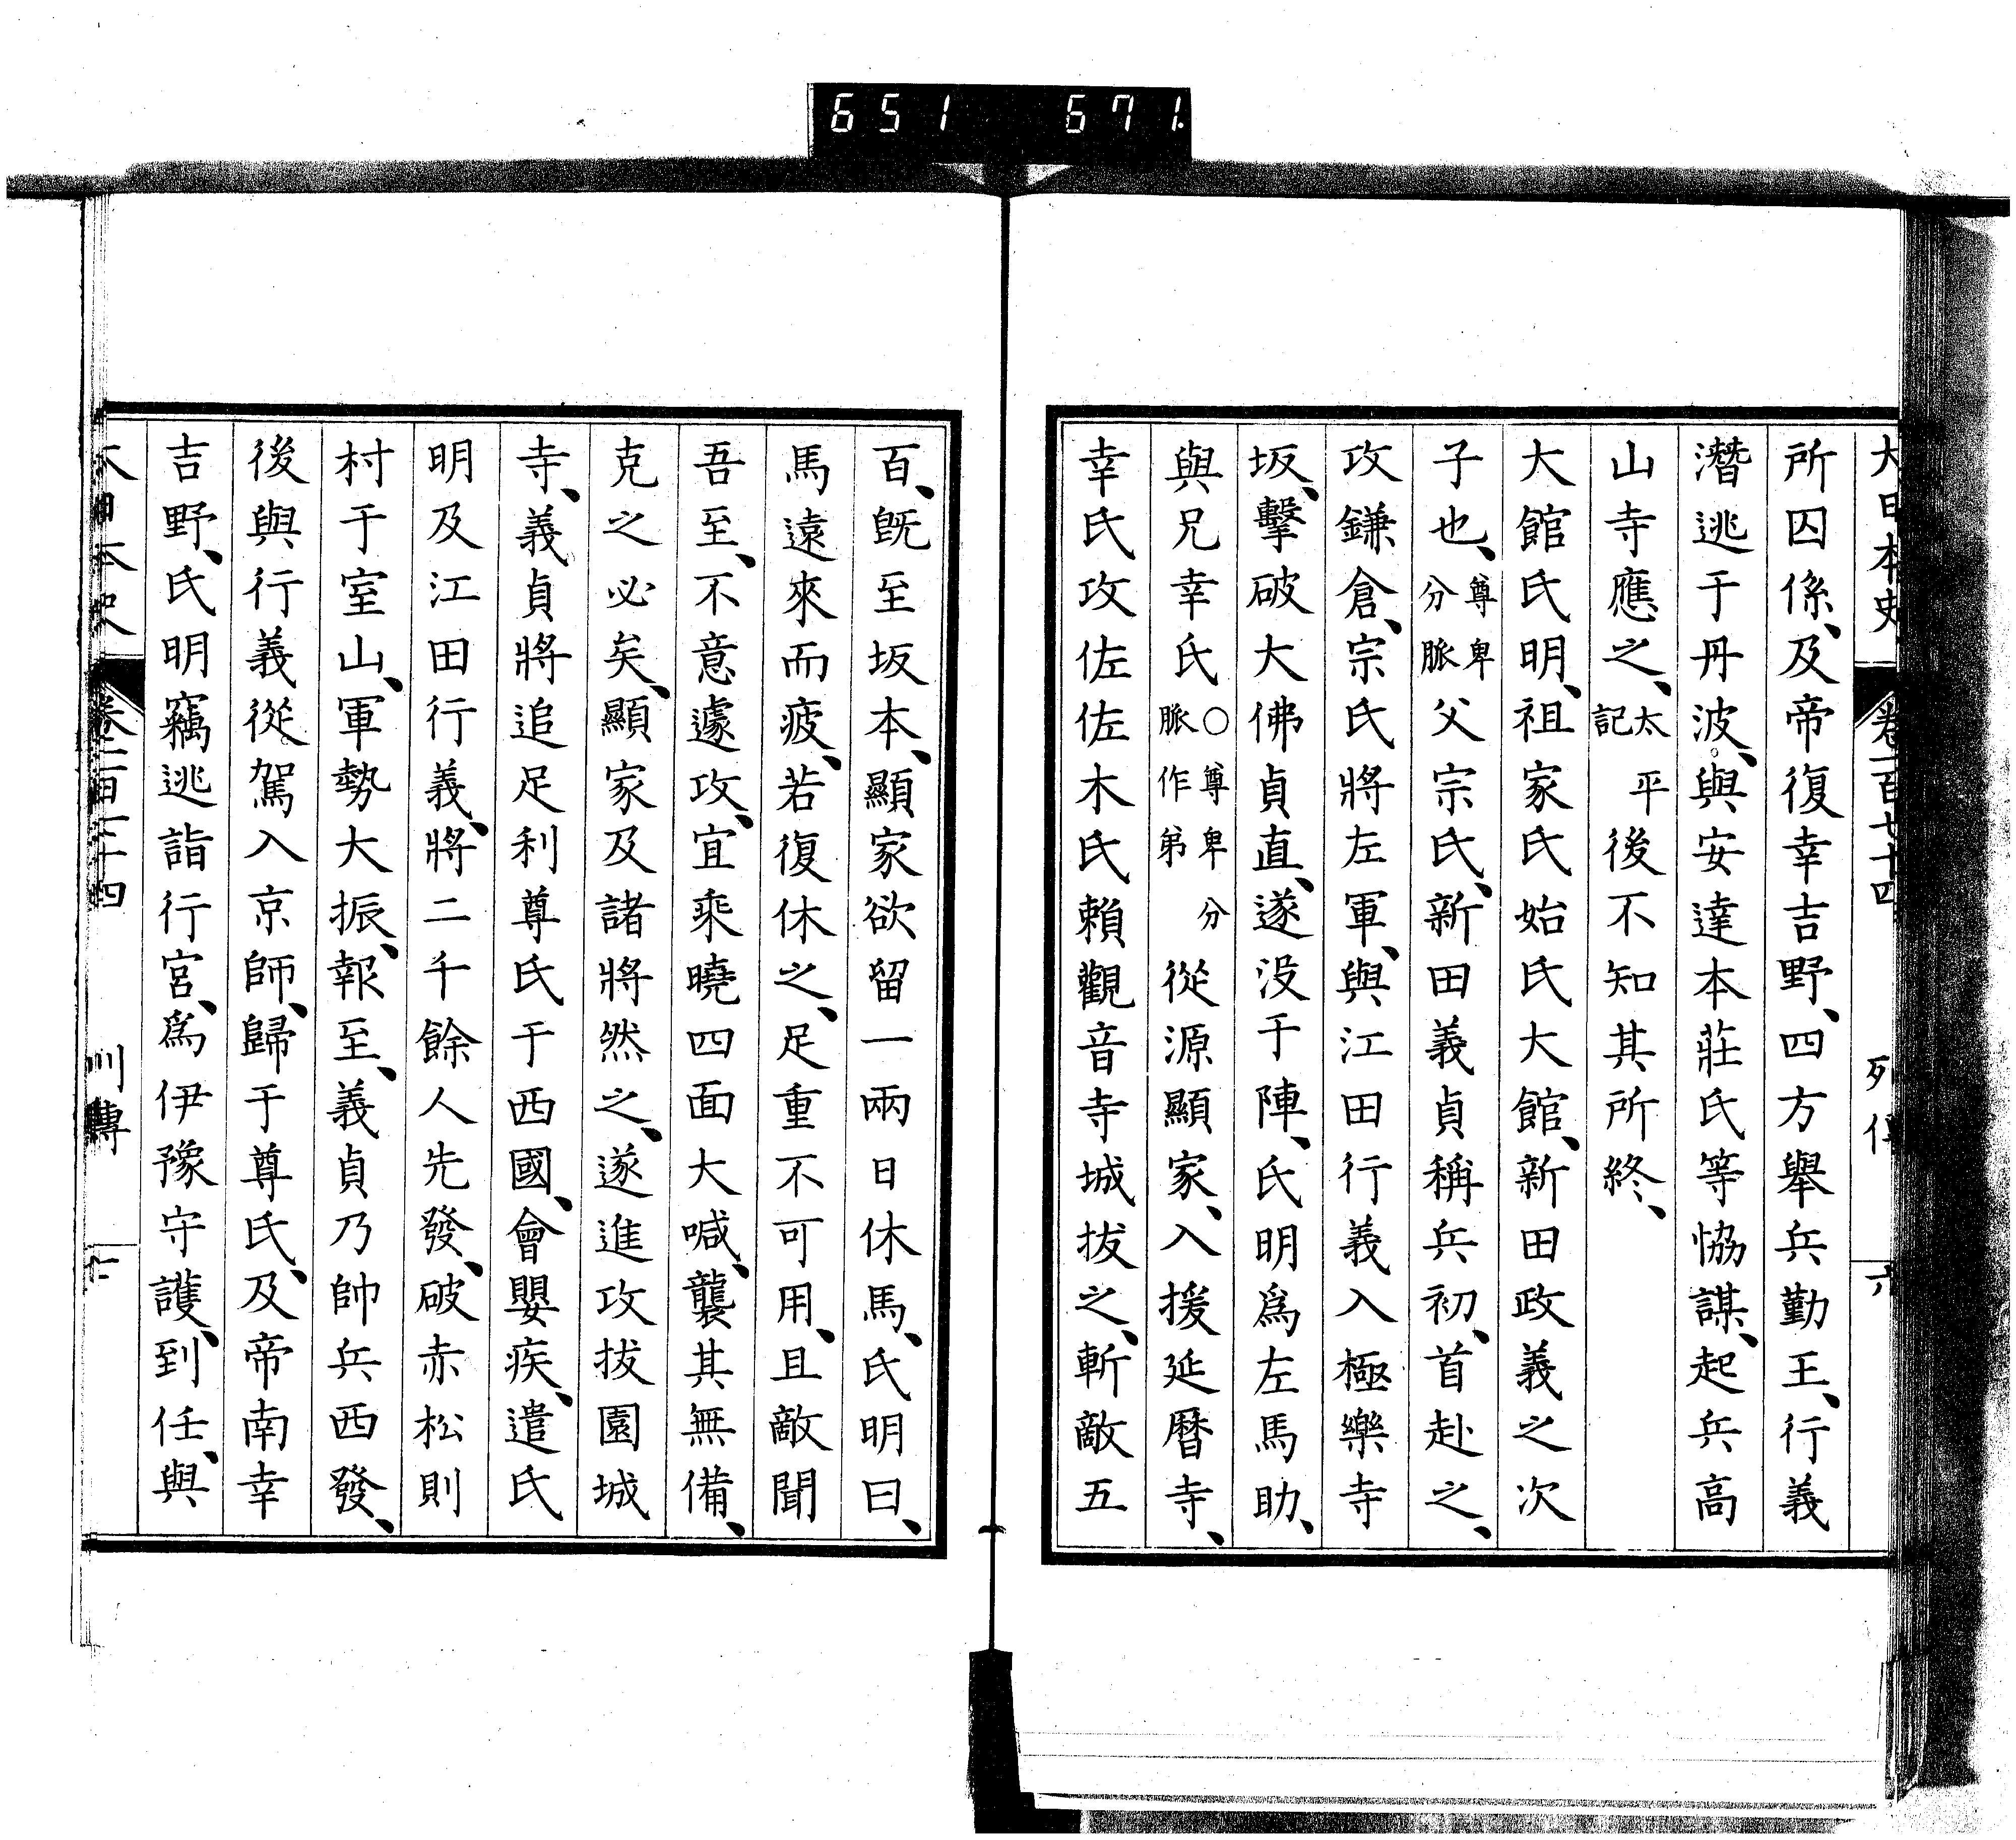 651 671
大日本史 卷一百七十四 列傳 六
所囚係、及帝復幸吉野、四方舉兵勤王、行義
潛逃于丹波、與安達本莊氏等恊謀、起兵高
山寺應之、太平記後不知其所終、
大館氏明、祖家氏始氏大館、新田政義之次
子也、尊卑分脈父宗氏、新田義貞稱兵初、首赴之、
攻鎌倉、宗氏將左軍、與江田行義入極樂寺
坂、擊破大佛貞直、遂没于陣、氏明爲左馬助、
與兄幸氏〇尊卑分脈作弟從源顯家、入援延暦寺、
幸氏攻佐佐木氏賴觀音寺城拔之、斬敵五
百、既至坂本、顯家欲留一兩日休馬、氏明曰、
馬遠來而疲、若復休之、足重不可用、且敵聞
吾至、不意遽攻、宜乘曉四面大喊、襲其無備、
克之必矣、顯家及諸將然之、遂進攻拔園城
寺、義貞將追足利尊氏于西國、會嬰疾、遣氏
明及江田行義、將二千餘人先發、破赤松則
村于室山、軍勢大振、報至、義貞乃帥兵西發、
後與行義從駕入京師、歸于尊氏、及帝南幸
吉野、氏明竊逃詣行宮、爲伊豫守護、到任、與
大日本史 卷一百七十四 列傳 七